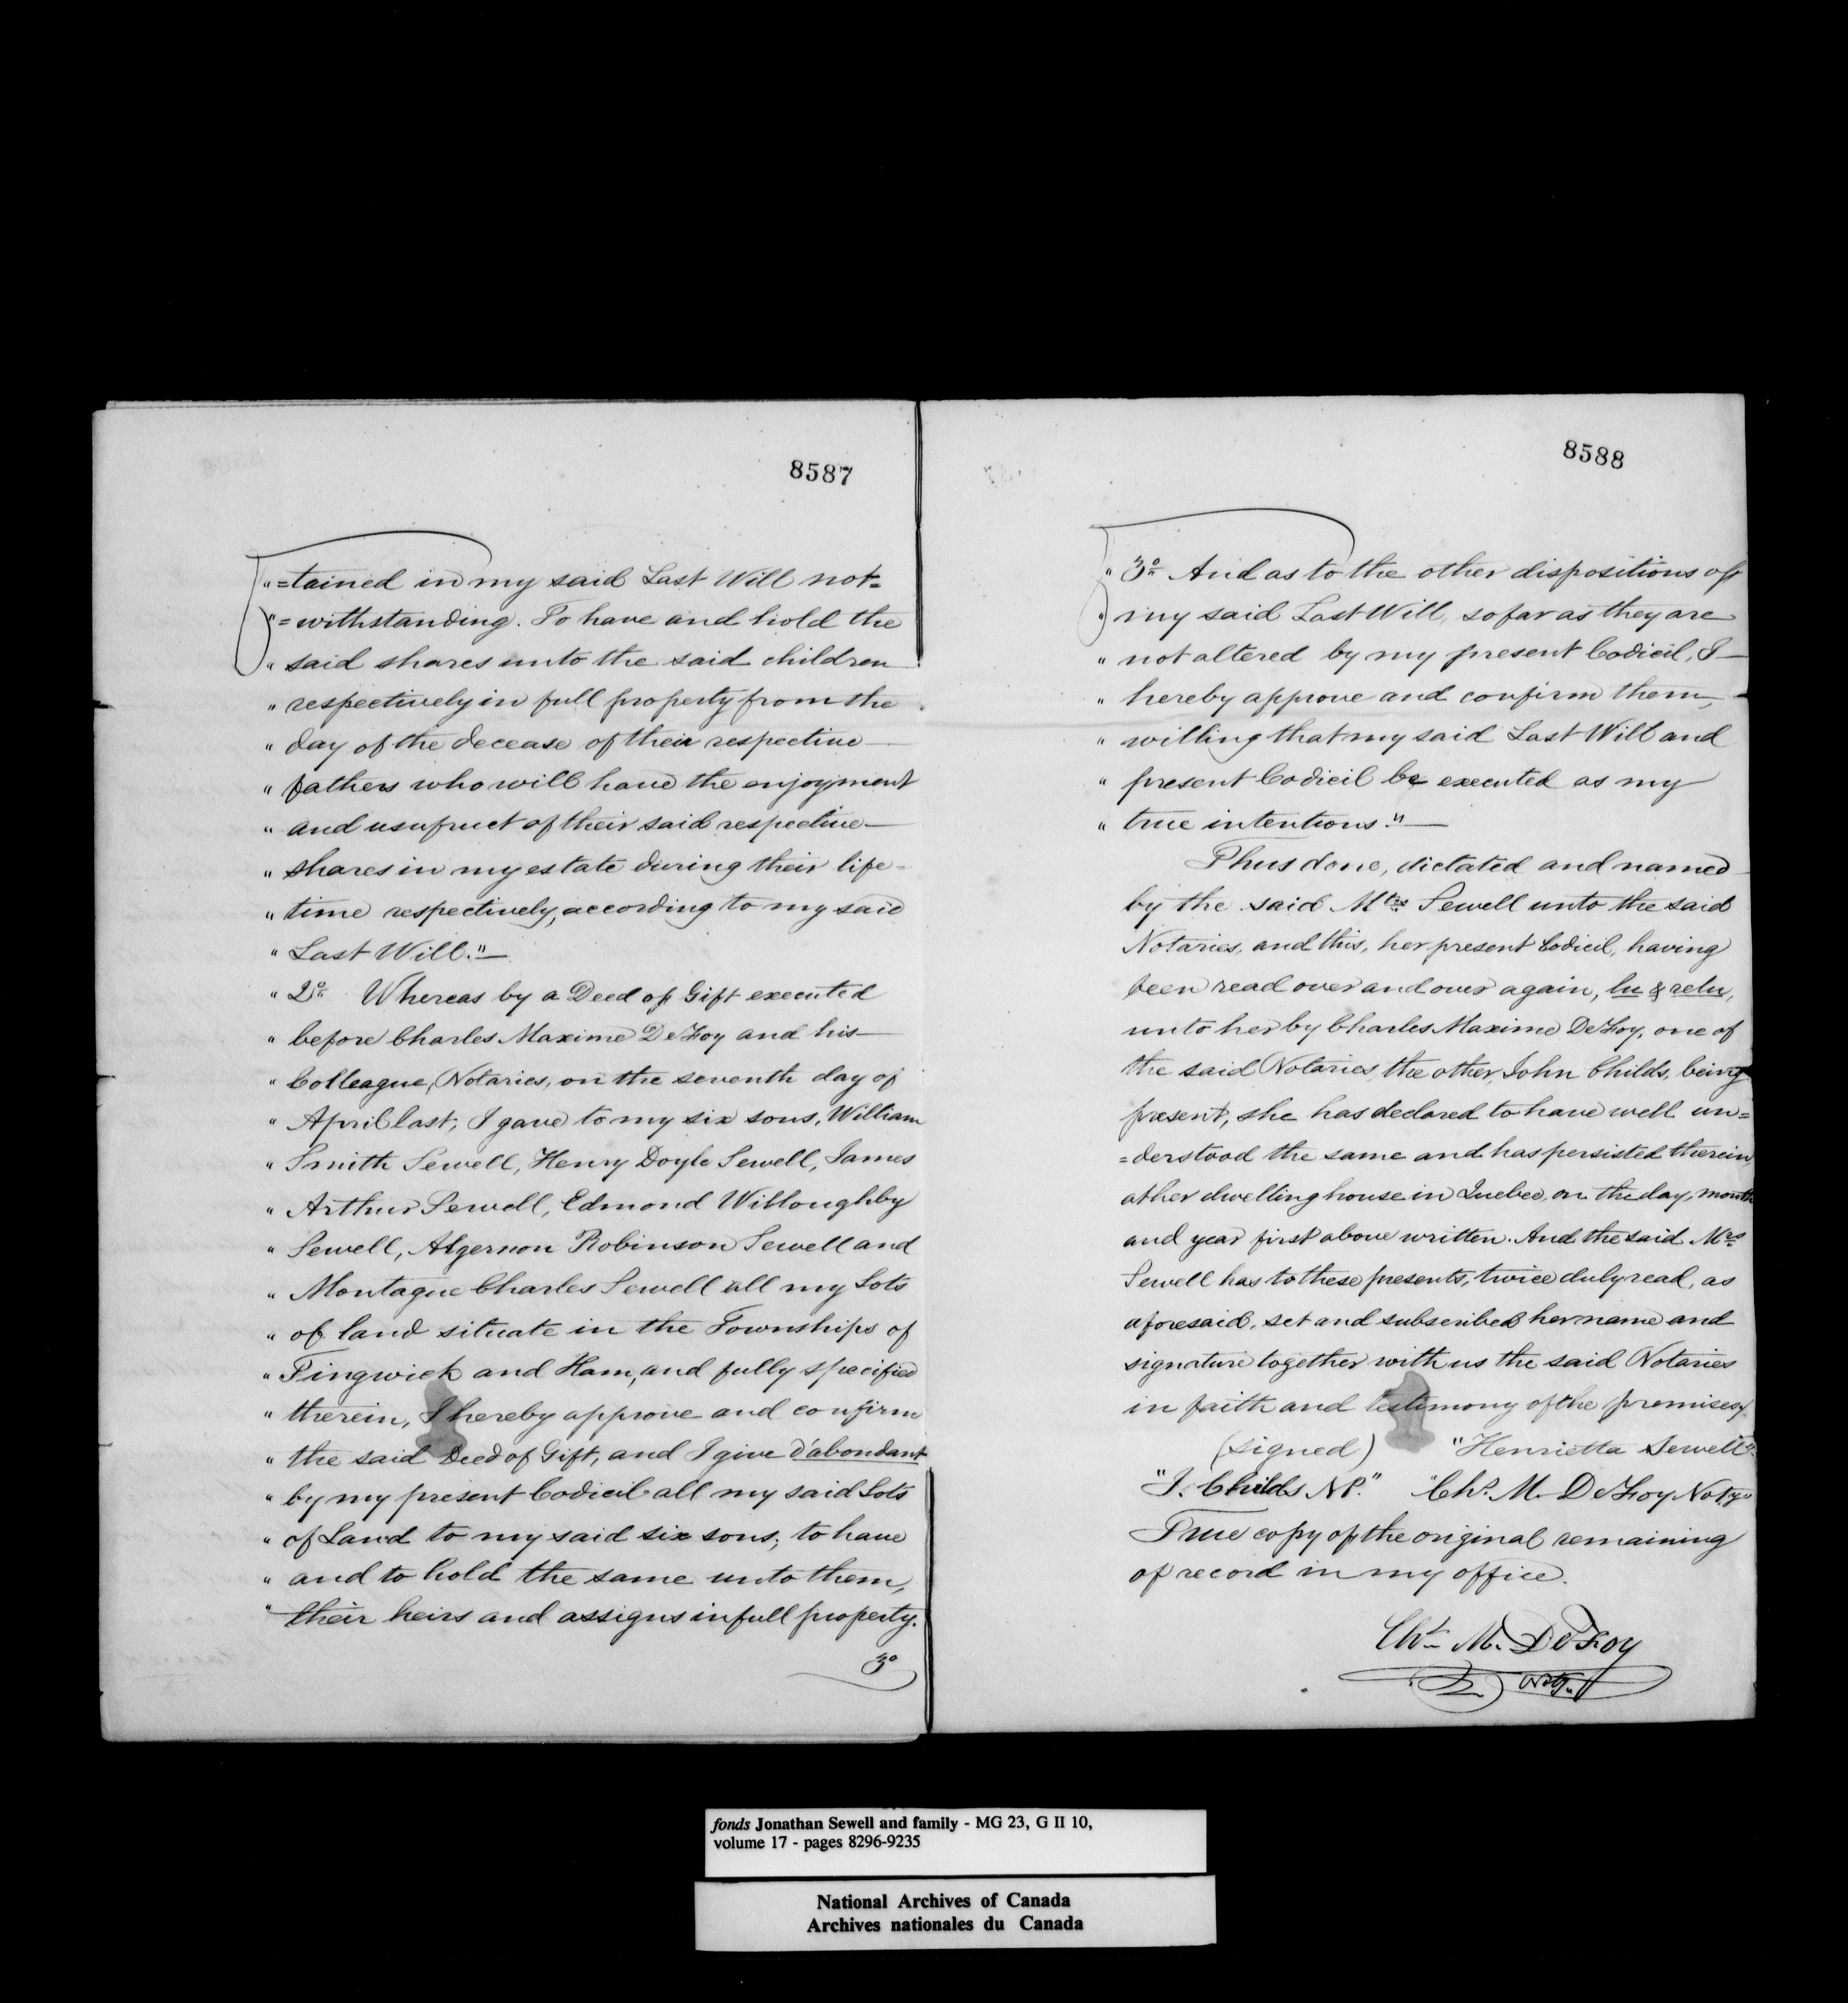 8587
" =tained in my said Last Will not=
" =withstanding. To have and hold the
" said shares unto the said children
" respectively in full property from the
" day of the decease of their respective —
" fathers who will have the enjoyment
" and usufruct of their said respective —
" shares in my estate during their life=
" time respectively, according to my said
" Last Will." —
" 2º Whereas by a Deed of Gift executed
" before Charles Maxime DeFoy and his —
" Colleague, Notaries, on the seventh day of
" April last, I gave to my six sons, William
" Smith Sewell, Henry Doyle Sewell, James
" Arthur Sewell, Edmond Willoughby
" Sewell, Algernon Robinson Sewell and
" Montague Charles Sewell all my Lots
" of land situate in the Townships of
" Tingwick and Ham, and fully specified
" therein, I hereby approve and confirm
" the said Deed of Gift, and I give d'abondant
" by my present Codicil all my said Lots
" of Land to my said six sons; to have
" and to hold the same unto them,
" their heirs and assigns in full property.
3º
8588
" 3º And as to the other dispositions of
" my said Last Will, so far as they are
" not altered by my present Codicil, I —
" hereby approve and confirm them,
" willing that my said Last Will and
" present Codicil be executed as my
" true intentions." —
Thus done, dictated and named
by the said Mrs Sewell unto the said
Notaries, and this, her present Codicil, having
been read over and over again, lu & relu,
unto her by Charles Maxime DeFoy, one of
the said Notaries, the other, John Childs, being
present, she has declared to have well un=
=derstood the same and has persisted therein
at her dwelling house in Quebec, on the day, month
and year first above written. And the said Mrs
Sewell has to these presents, twice duly read, as
aforesaid, set and subscribed her name and
signature together with us the said Notaries
in faith and testimony of the premises.
(signed) "Henrietta Sewell"
"J. Childs NP." "Chs. M. DeFoy Noty"
True copy of the original remaining
of record in my office.
Chs M. DeFoy
Noty.
fonds Jonathan Sewell and family - MG 23, G II 10,
volume 17 - pages 8296-9235
National Archives of Canada
Archives nationales du Canada